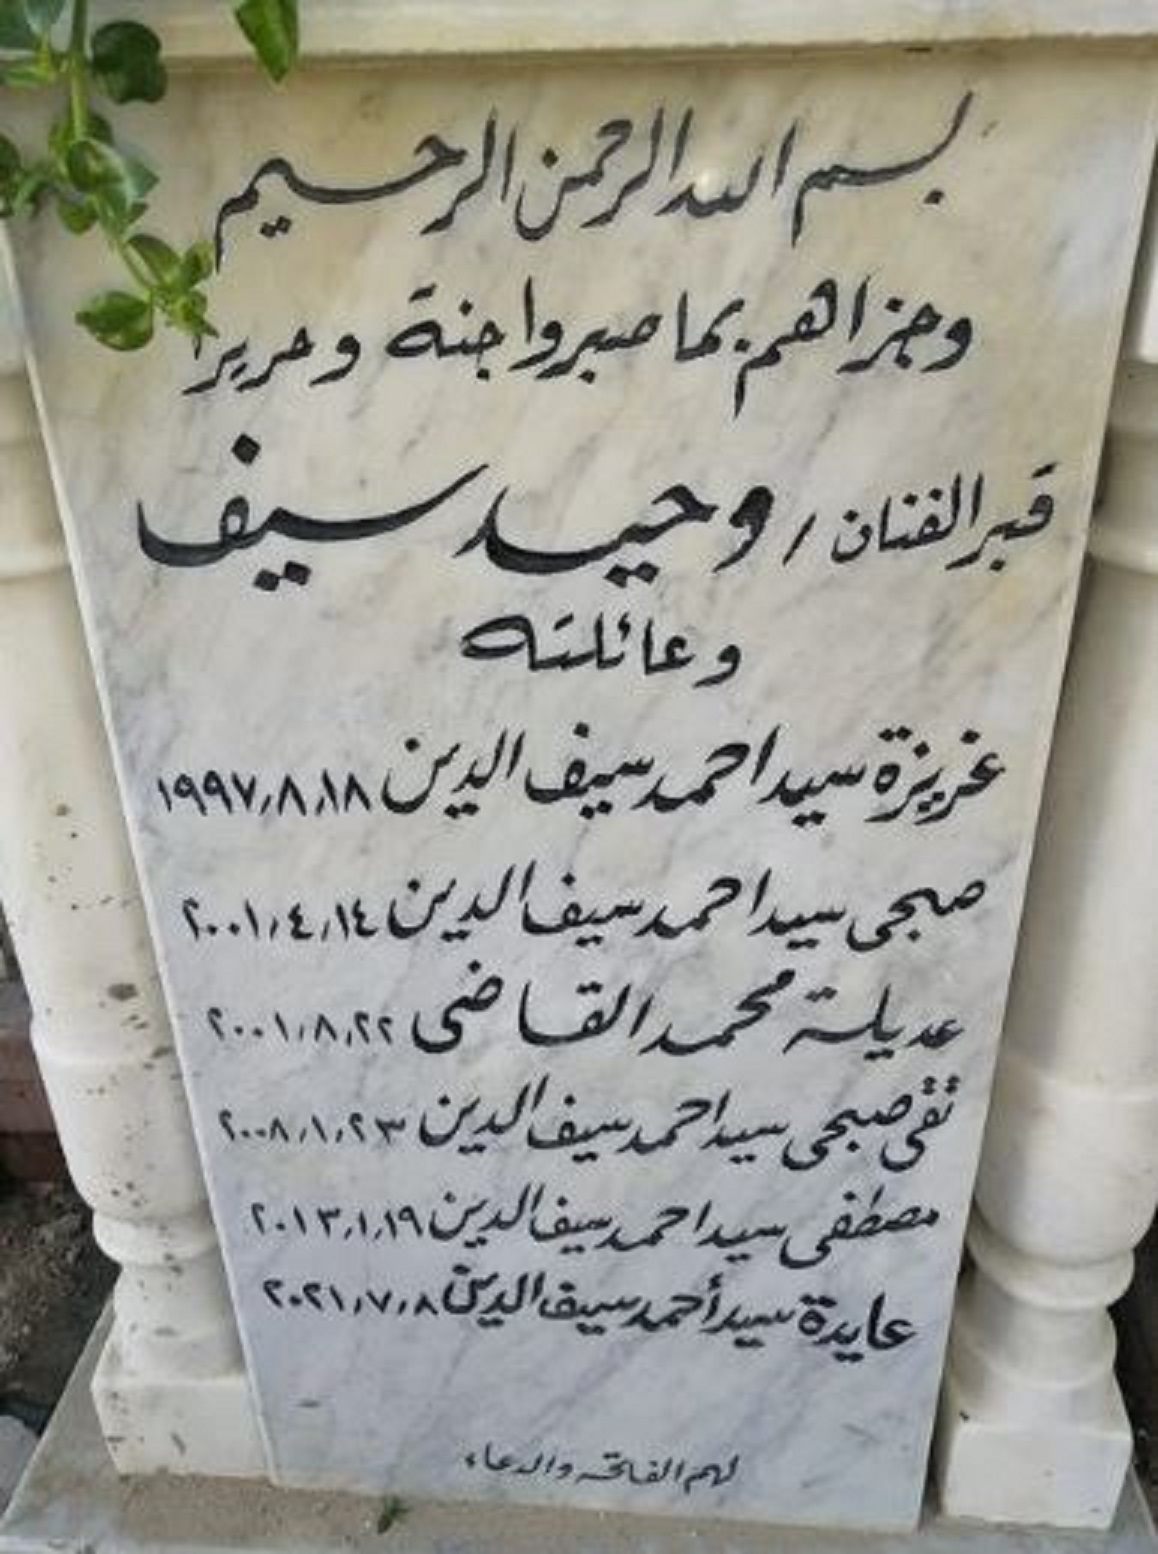 بسم الله الرحمن الرحيم
وجزاهم بما صبروا جنة وحريرا
قبر الفنان / وحيد سيف
وعائلته
عزيزة سيد احمد سيف الدين ١٩٩٧،٨،١٨
صبحى سيد احمد سيف الدين ٢٠٠١،٤،١٤
عديلة محمد القاضى ٢٠٠١،٨،٢٢
تقى صبحى سيد احمد سيف الدين ٢٠٠٨،١،٢٣
مصطفى سيد احمد سيف الدين ٢٠١٣،١،١٩
عايدة سيد أحمد سيف الدين ٢٠٢١،٧،٨
لهم الفاتحه والدعاء